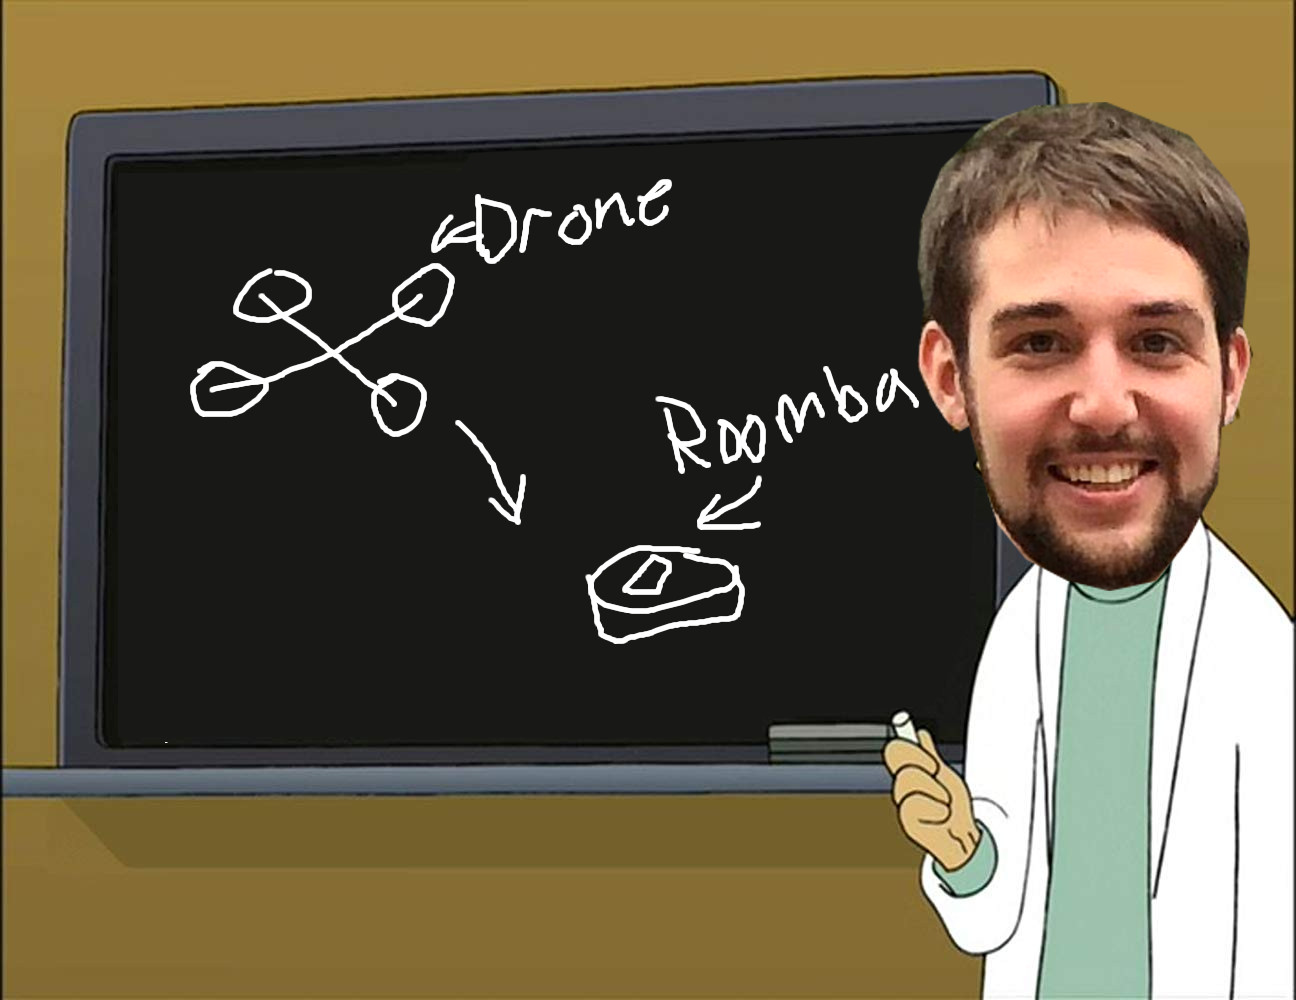 Drone
Roomba